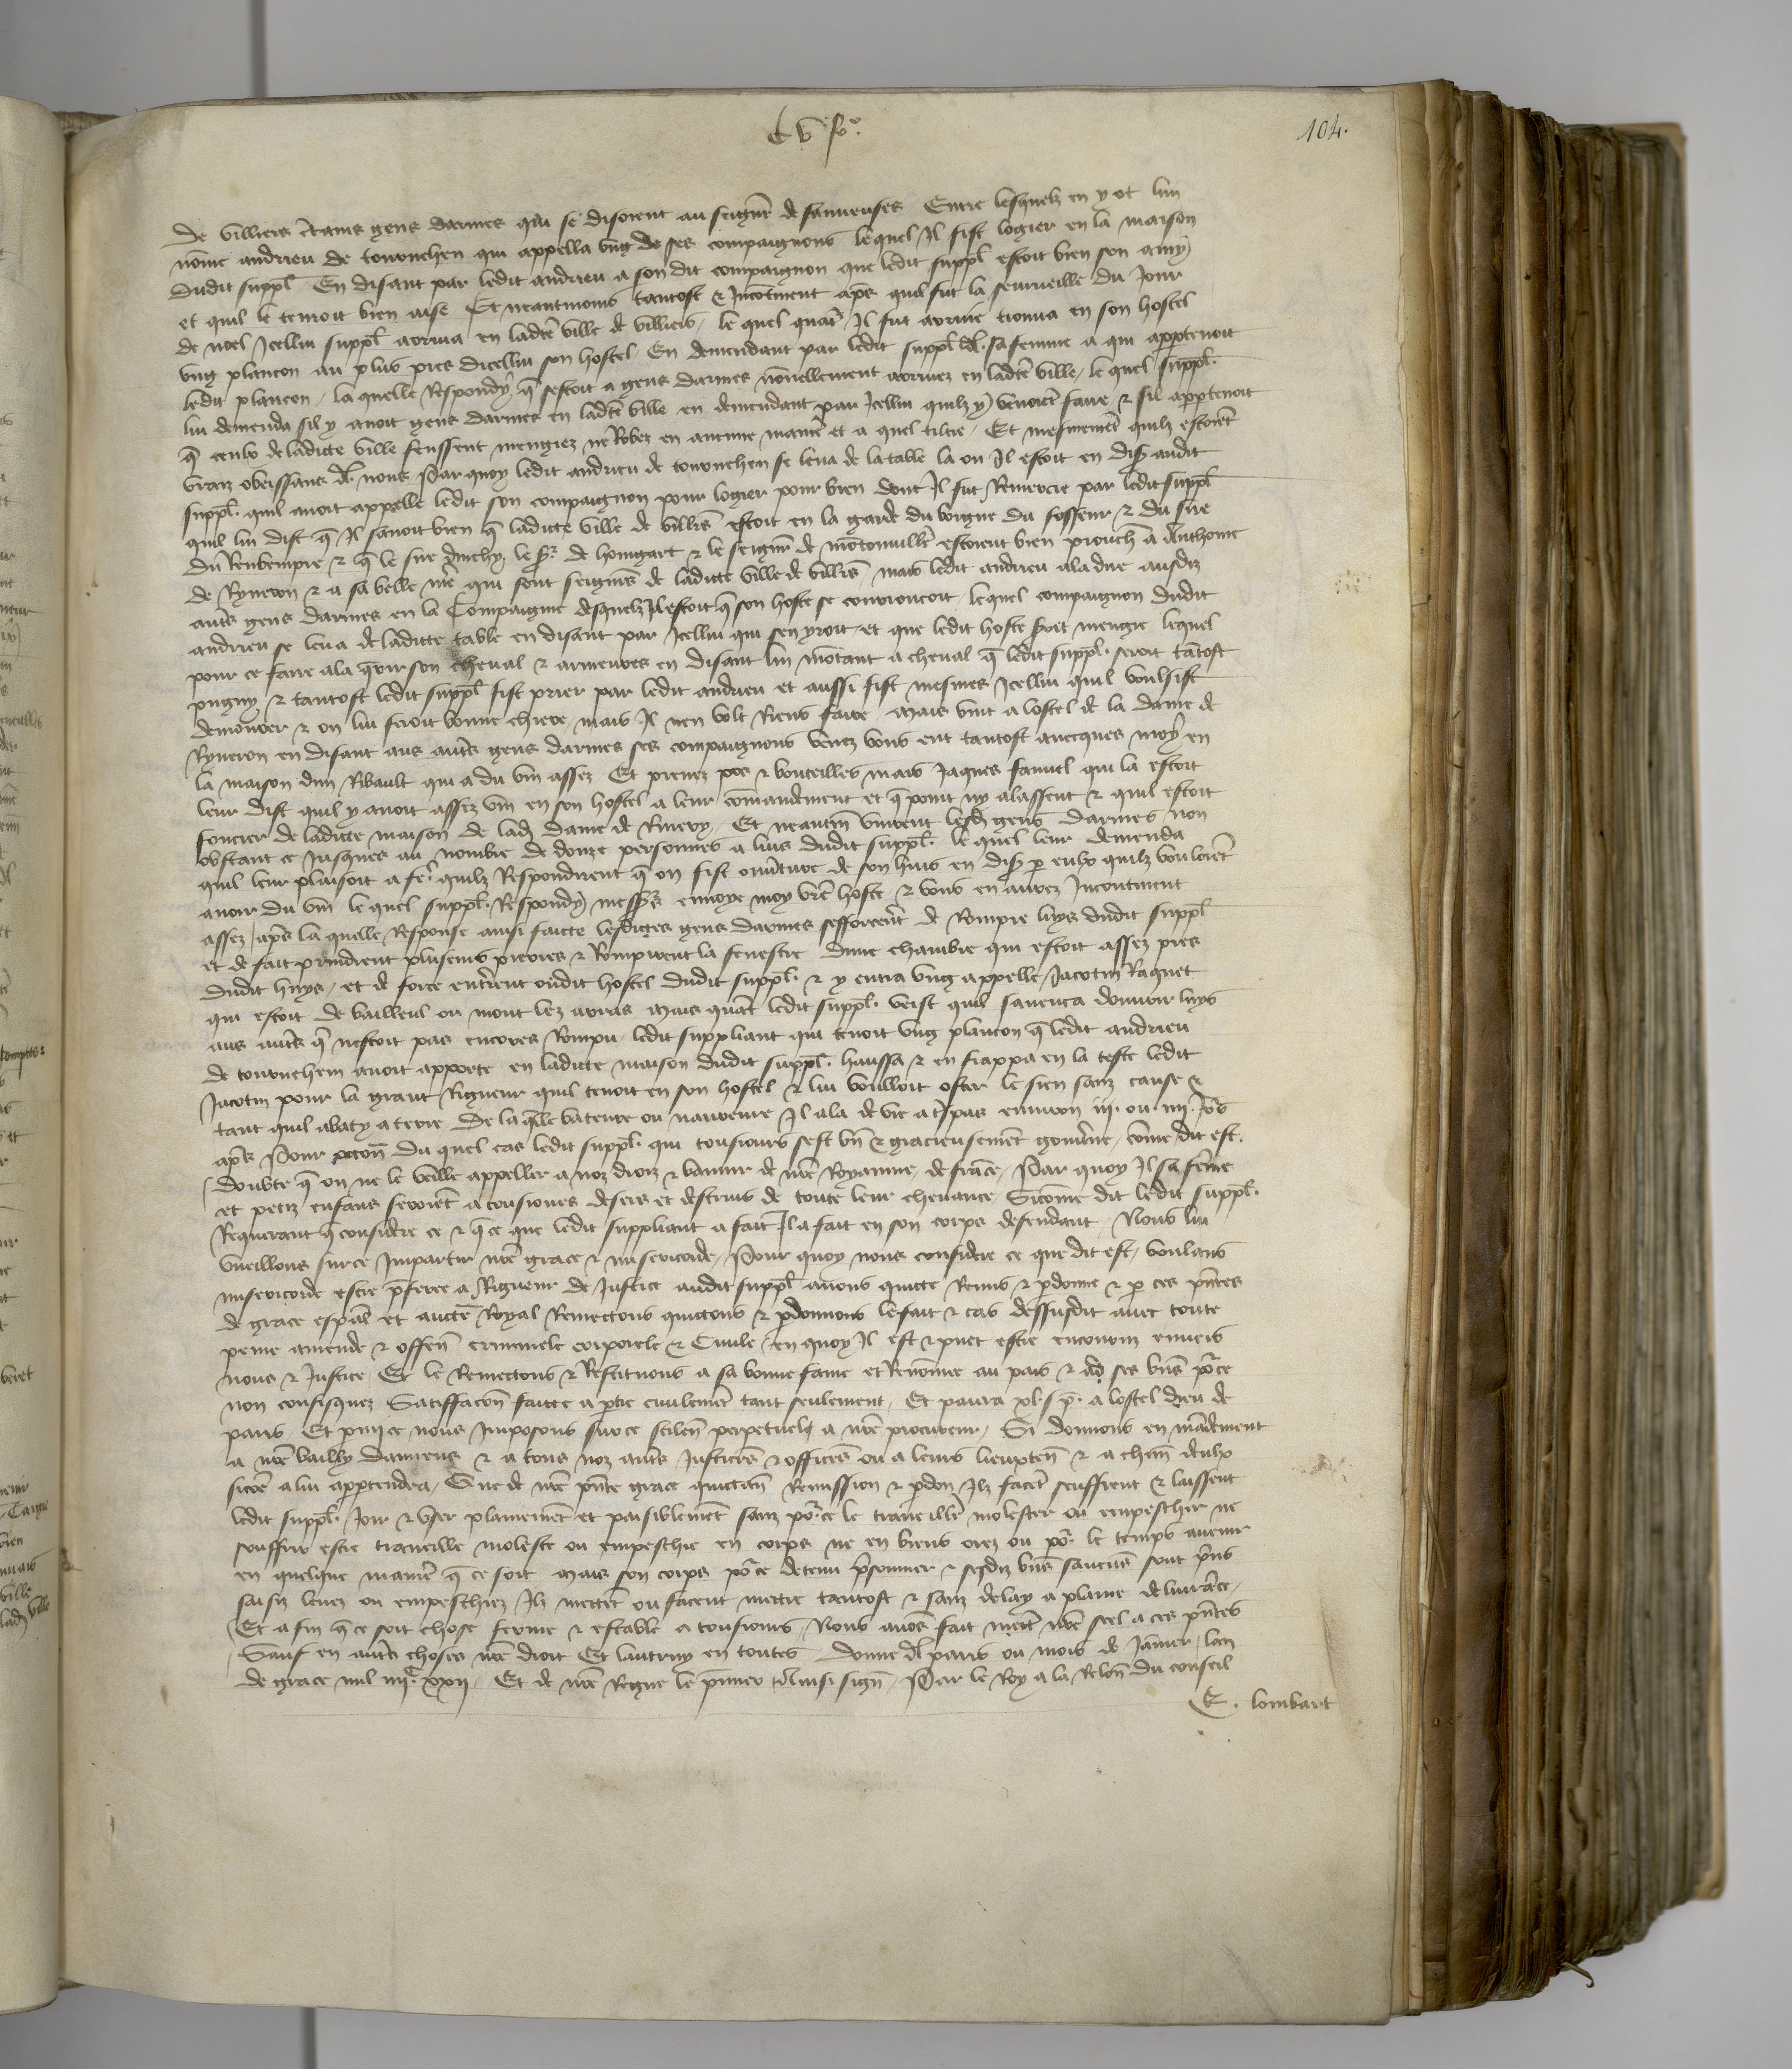 C V fo.
104.
de Villiers certains gens darmes qui se disoient au seignr de saveuses Entre lesquelz en y ot lun
nōme andrieu de tournehen qui appella ung de ses compaignons lequel Il fist logier en la maison
dudit suppl. En disant par ledit andrieu a son dit compaignon que ledit suppl estoit bien son amy
et quil le tenoit bien aise Et neantmoins tantost & Incōtinent apres quil fut la seurveille du Jour
de noel Icellui suppl arriva en ladte ville de villiers, le quel quāt Il fut arrivé trouva en son hostel
ung plancon au plus pres dicellui son hostel En demendant par ledit suppl a sa femme a qui appartenoit
ledit plancon, la quelle Respondy q̄ sestoit a gens darmes nouvellement arrivez en ladte ville, le quel suppl.
lui demenda sil y avoit gens darmes en ladte ville en demendant par Icellui quilz y venoiēt faire & sil appartenoit
q̄ ceulx de ladicte ville feussent mengiez ne Robez en aucune maniē et a quel tiltre, Et mesmemēt quilz estoiēt
vraiz obeissans de nous Par quoy ledit andrieu de tournehen se leva de la table la ou Il estoit en disāt audit
suppl. quil avoit appelle ledit son compaignon pour logier pour bien dont Il fut Remercie par ledit suppl
quil lui dist q̄ Il savoit bien q̄ ladicte ville de villrs estoit en la garde du borgne du fosseux & du sire
du Reubempre & q̄ le sire Dinchy, le sr de homgart & le seignr de mōtonviller estoient bien prouchā a Anthoine
de Ryneron & a sa belle mē qui sont seignrs de ladicte ville de villrs mais ledit andrieu ala dire ausdiz
autrs gens darmes en la Compaignie desquelz Il estoit q̄ son hoste se courroucoit, lequel compaignon dudit
andrieu se leva de ladicte table en disāt par Icellui qui sen yroit, et que ledit hoste seroit mengie, lequel
pour ce faire ala q̄rir son cheval & armeures en disant lui mōtant a cheval q̄ ledit suppl. seroit tātost
pugny, & tantost ledit suppl fist prier par ledit andrieu et aussi fist mesmes Icellui quil voulsist
demourer & on lui feroit bonne chiere, mais Il nen volt Riens faire. Mais vint a lostel de la dame de
Ryneron en disant aus autrs gens darmes ses compaignons venez vous ent tantost avecques moy en
la maison dun Ribault qui a du vin assez Et prenez pos & bouteilles mais Jaques fanuel qui la estoit
leur dist quil y avoit assez vin en son hostel a leur cōmandement et q̄ point ny alassent & quil estoit
foncier de ladicte maison de lad dame de Rinery, Et neantm vindrent lesd gens darmes non
obstant ce Jusques au nombre de douze personnes a luis dudit suppl. le quel leur demenda
quil leur plaisoit a fe. quilz Respondirent q̄ on fist ouvrture de son huis en dis p eulx quilz vouloiēt
avoir du vin le quel suppl. Respondy messrs envoye moy vrē hoste & vous en aurez Incontinent
assez, apres la quelle Response ainsi faicte lesdictes gens darmes sefforcerēt de Rompre luys dudit suppl
et de fait prindrent pluseurs pierres & Rompirent la fenestre dune chambre qui estoit assez pres
dudit huys, et de force entrerent oudit hostel dudit suppl. & y entra ung appelle Jacotin Raquet
qui estoit de bailleul ou mont lez arras Mais quāt ledit suppl. veist quil savenca douvrir luys
aus autrs q̄ nestoit pas encores Rompu, ledit suppliant qui tenoit ung plancon q̄ ledit andrieu
de tournehem avoit apporte en ladicte maison dudit suppl. haussa & en frappa en la teste ledit
Jacotin pour la grant Rigueur quil tenoit en son hostel & lui vouloit oster le sien sanz cause &
tant quil abaty a terre De la qlle bateure ou navreure Il ala de vie a trespas environ iij. ou iiij. Jōs
apres Pour occoīn du quel cas ledit suppl. qui tousiours sest bn & gracieusemēt gouvrne, cōme dit est.
Doubte q̄ on ne le veille appeller a noz droiz & bannir de nrē Royaume, de frāce, Par quoy Il sa fēme
et petiz enfans seroiēt a tousiours desers et destruis de toute leur chevance Sicōme dit ledit suppl.
Requerant q̄ considere ce & q̄ ce que ledit suppliant a fait Il a fait en son corps defendant, Nous lui
vueillons sur ce Impartir nrē grace & misericorde, Pour quoy nous considere ce que dit est, voulans
misericorde estre pferee a Rigueur de Justice audit suppl avons quicte Remis & pdonne & p ces pntes
de grace espāl et auctē Royal Remectons quictons & pdonnons le fait & cas dessusdit avec toute
peine amende & offen criminele corporele & Civile, en quoy Il est & puet estre encouru envers
nous & Justice Et le Remectons & Restituons a sa bonne fame et Renōmee au pais & a ses bns pō ce
non confisquez Satiffacon faicte a ptie civilemēt tant seulement, Et paiera xl. s. p. a lostel dieu de
paris Et parmi ce nous Imposons sur ce silen perpetuel a nrē procureur, Si donnons en mādement
a nrē bailly Damiens & a tous noz autrs Justiciers & officrs ou a leurs lieuxten & a chūn deulx
sicōe a lui appartendra, Que de nrē pnte grace quictān Remission & pdon Ilz facēt seuffrent & laissent
ledit suppl. Joir & user plainemēt et paisiblemēt sanz pō ce le traveillr molester ou empeschier ne
souffrir estre traveille moleste ou empeschie en corps ne en biens ores ou pō le temps avenir
en quelque maniē q̄ ce soit Mais son corps pō ce detenu prisonnier & sesdiz bns saucuns sont prins
saisiz levez ou empeschiez Ilz mettēt ou facent mettre tantost & sanz delay a plaine delivrāce,
Et a fin q̄ ce soit chose ferme & estable a tousiours Nous avōs fait mettē nrē seel a ces pntes
Sauf en autrs choses nrē droit Et lautruy en toutes Donne a paris ou mois de Janvier, lan
de grace mil iiijc. xxij. Et de nrē Regne le premier Ainsi sign, Par le Roy a la Relon du conseil
E. lombart